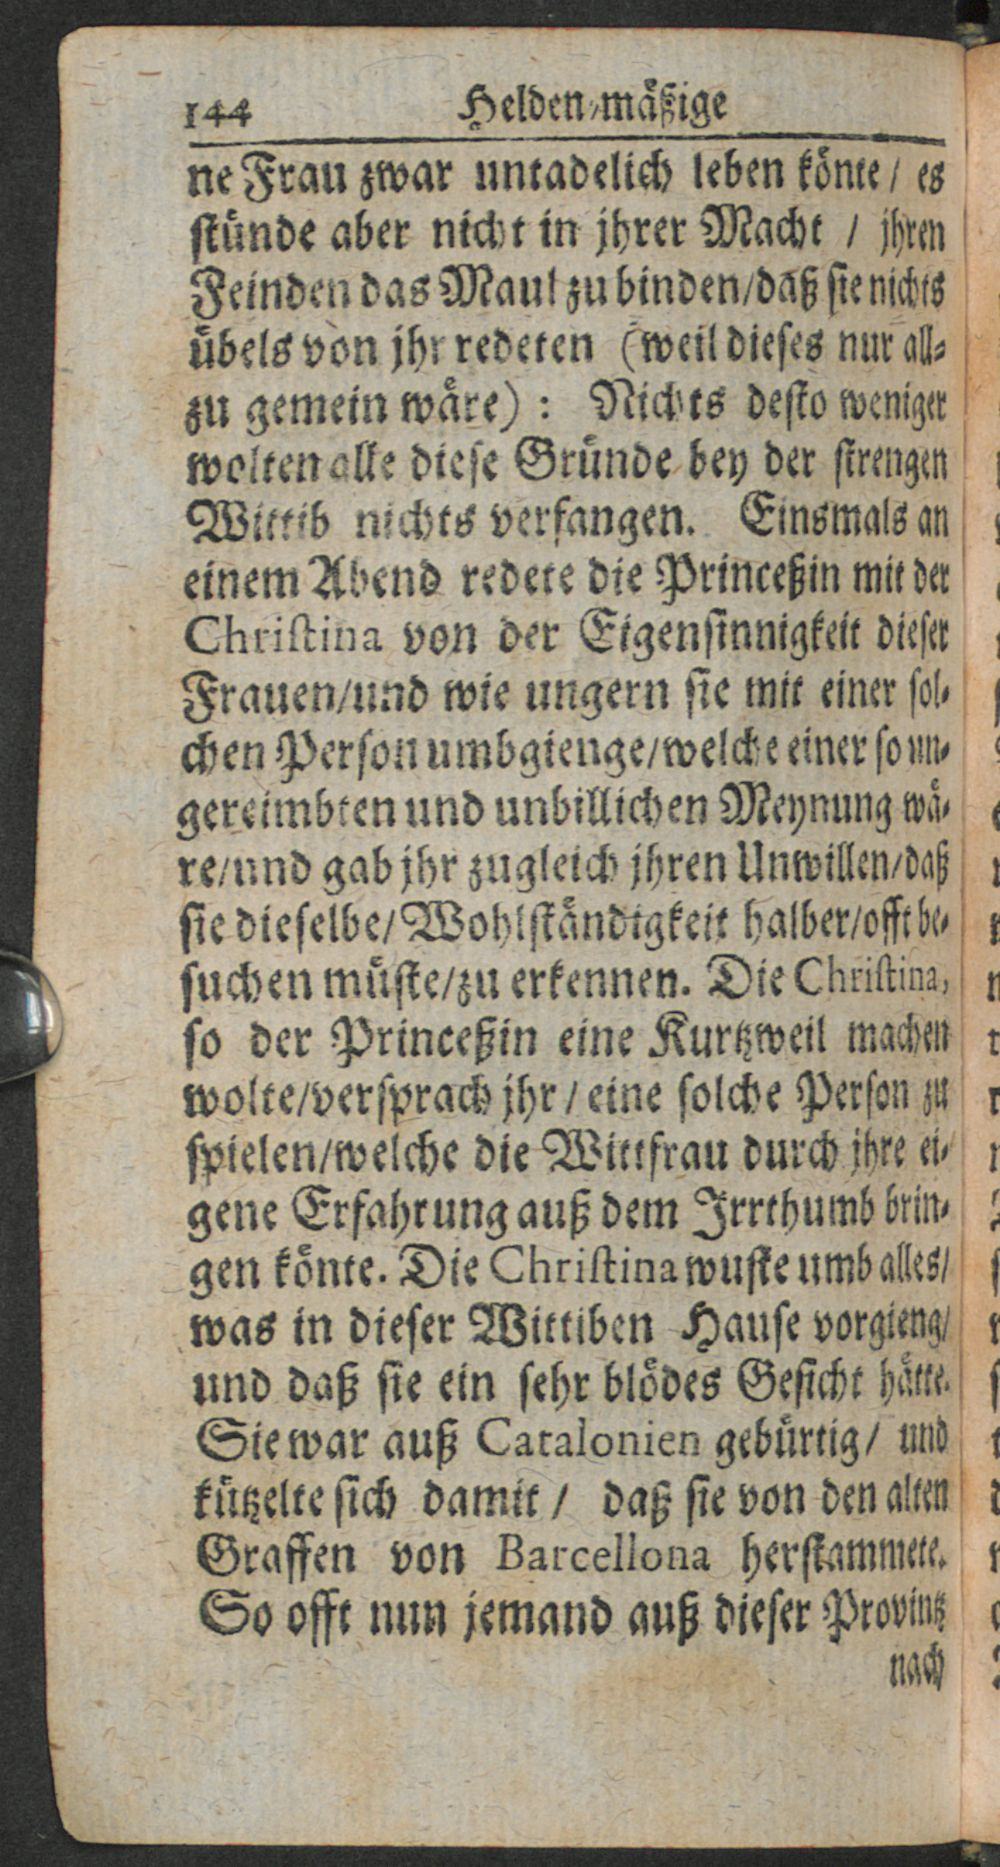 144 Helden-mäßige
ne Frau zwar untadelich leben könte / es
stünde aber nicht in jhrer Macht / jhren
Feinden das Maul zu binden/daß sie nichts
übels von jhr redeten (weil dieses nur all-
zu gemein wäre) : Nichts desto weniger
wolten alle diese Gründe bey der strengen
Wittib nichts verfangen. Einsmals an
einem Abend redete die Princeßin mit der
Christina von der Eigensinnigkeit dieser
Frauen/und wie ungern sie mit einer sol-
chen Person umbgienge/welche einer so un-
gereimbten und unbillichen Meynung wä-
re/und gab jhr zugleich jhren Unwillen/daß
sie dieselbe/Wohlständigkeit halber/offt be-
suchen müste/zu erkennen. Die Christina,
so der Princeßin eine Kurtzweil machen
wolte/versprach jhr / eine solche Person zu
spielen/welche die Wittfrau durch jhre ei-
gene Erfahrung auß dem Irrthumb brin-
gen könte. Die Christina wuste umb alles/
was in dieser Wittiben Hause vorgieng/
und daß sie ein sehr blödes Gesicht hätte.
Sie war auß Catalonien gebürtig/ und
kützelte sich damit / daß sie von den alten
Graffen von Barcellona herstammete.
So offt nun jemand auß dieser Provintz
nach